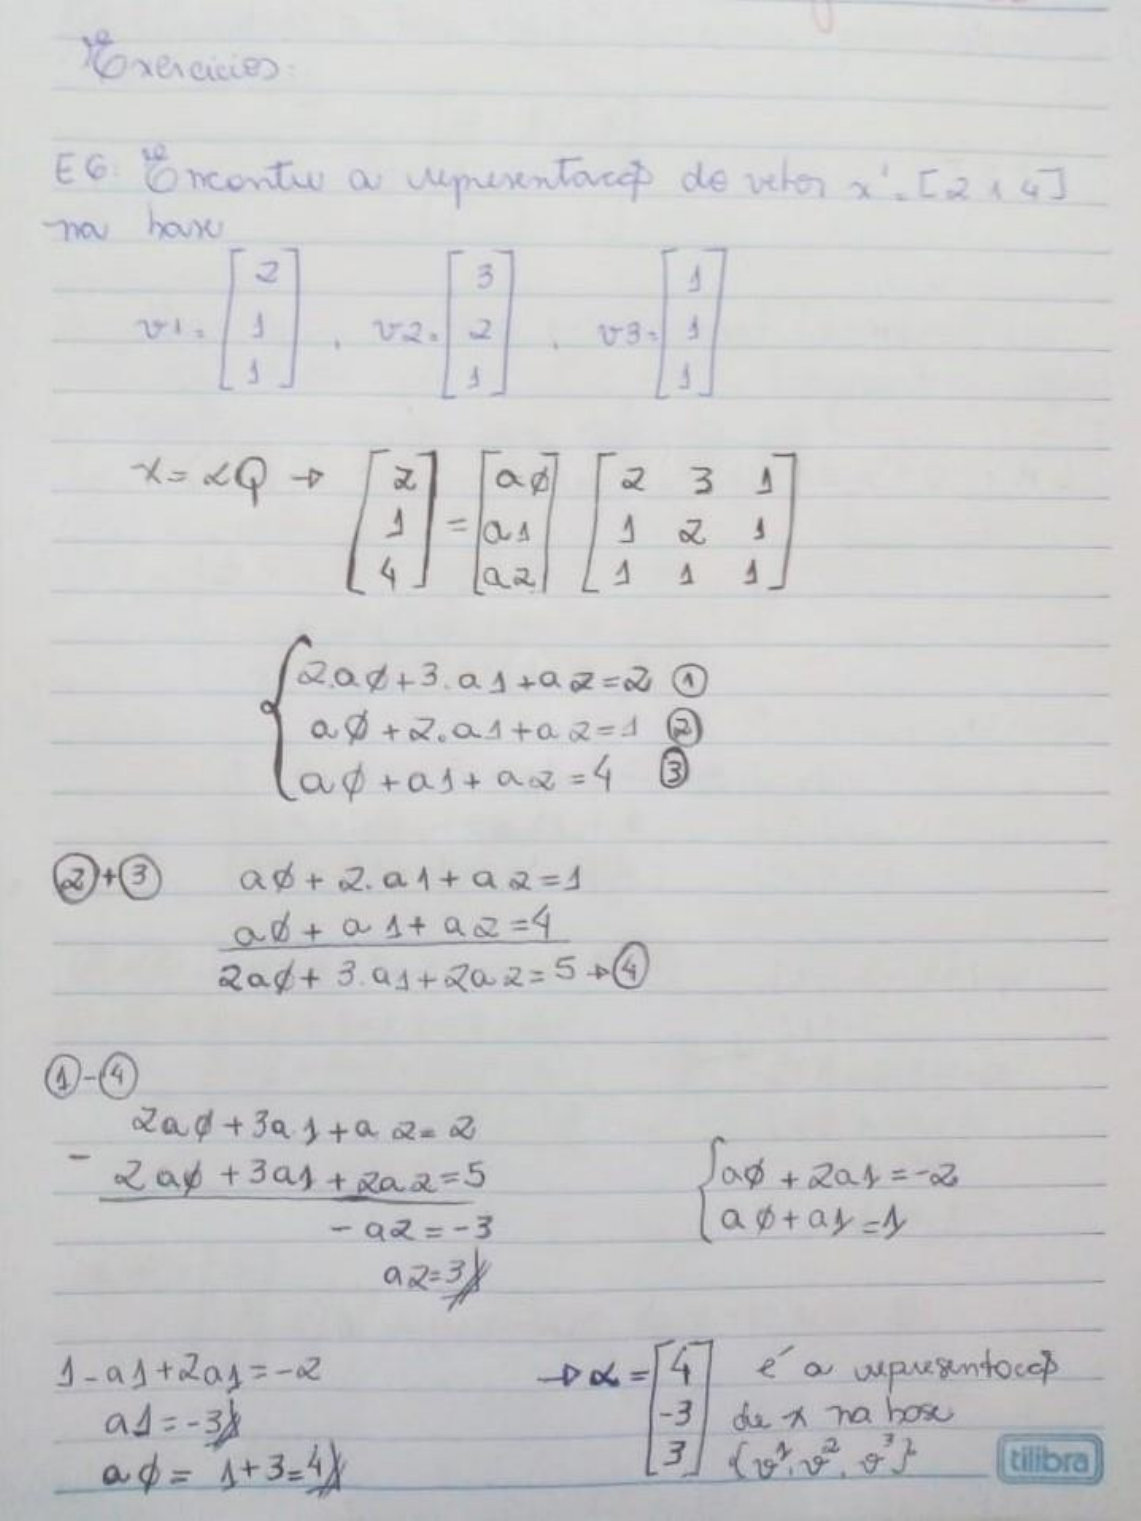 Exercícios:
E6: Encontre a representação do vetor x'=[2 1 4]
na base
v1= [2 1 1], v2= [3 2 1], v3= [1 1 1]
x = αQ → [2 1 4] = [aø a1 a2] [2 3 1
1 2 1
1 1 1]
2.aø+3.a1+a2=2 ①
aø+2.a1+a2=1 ②
aø+a1+a2=4 ③
②+③ aø+2.a1+a2=1
aø+a1+a2=4
2aø+3.a1+2a2=5 → ④
①-④
2aø+3a1+a2=2
- 2aø+3a1+2a2=5
-a2=-3
a2=3//
aø+2a1=-2
aø+a1=1
1-a1+2a1=-2
a1=-3//
aø=1+3=4//
→ α = [4 -3 3] é a representação
de x na base
{v¹, v², v³}
tilibra